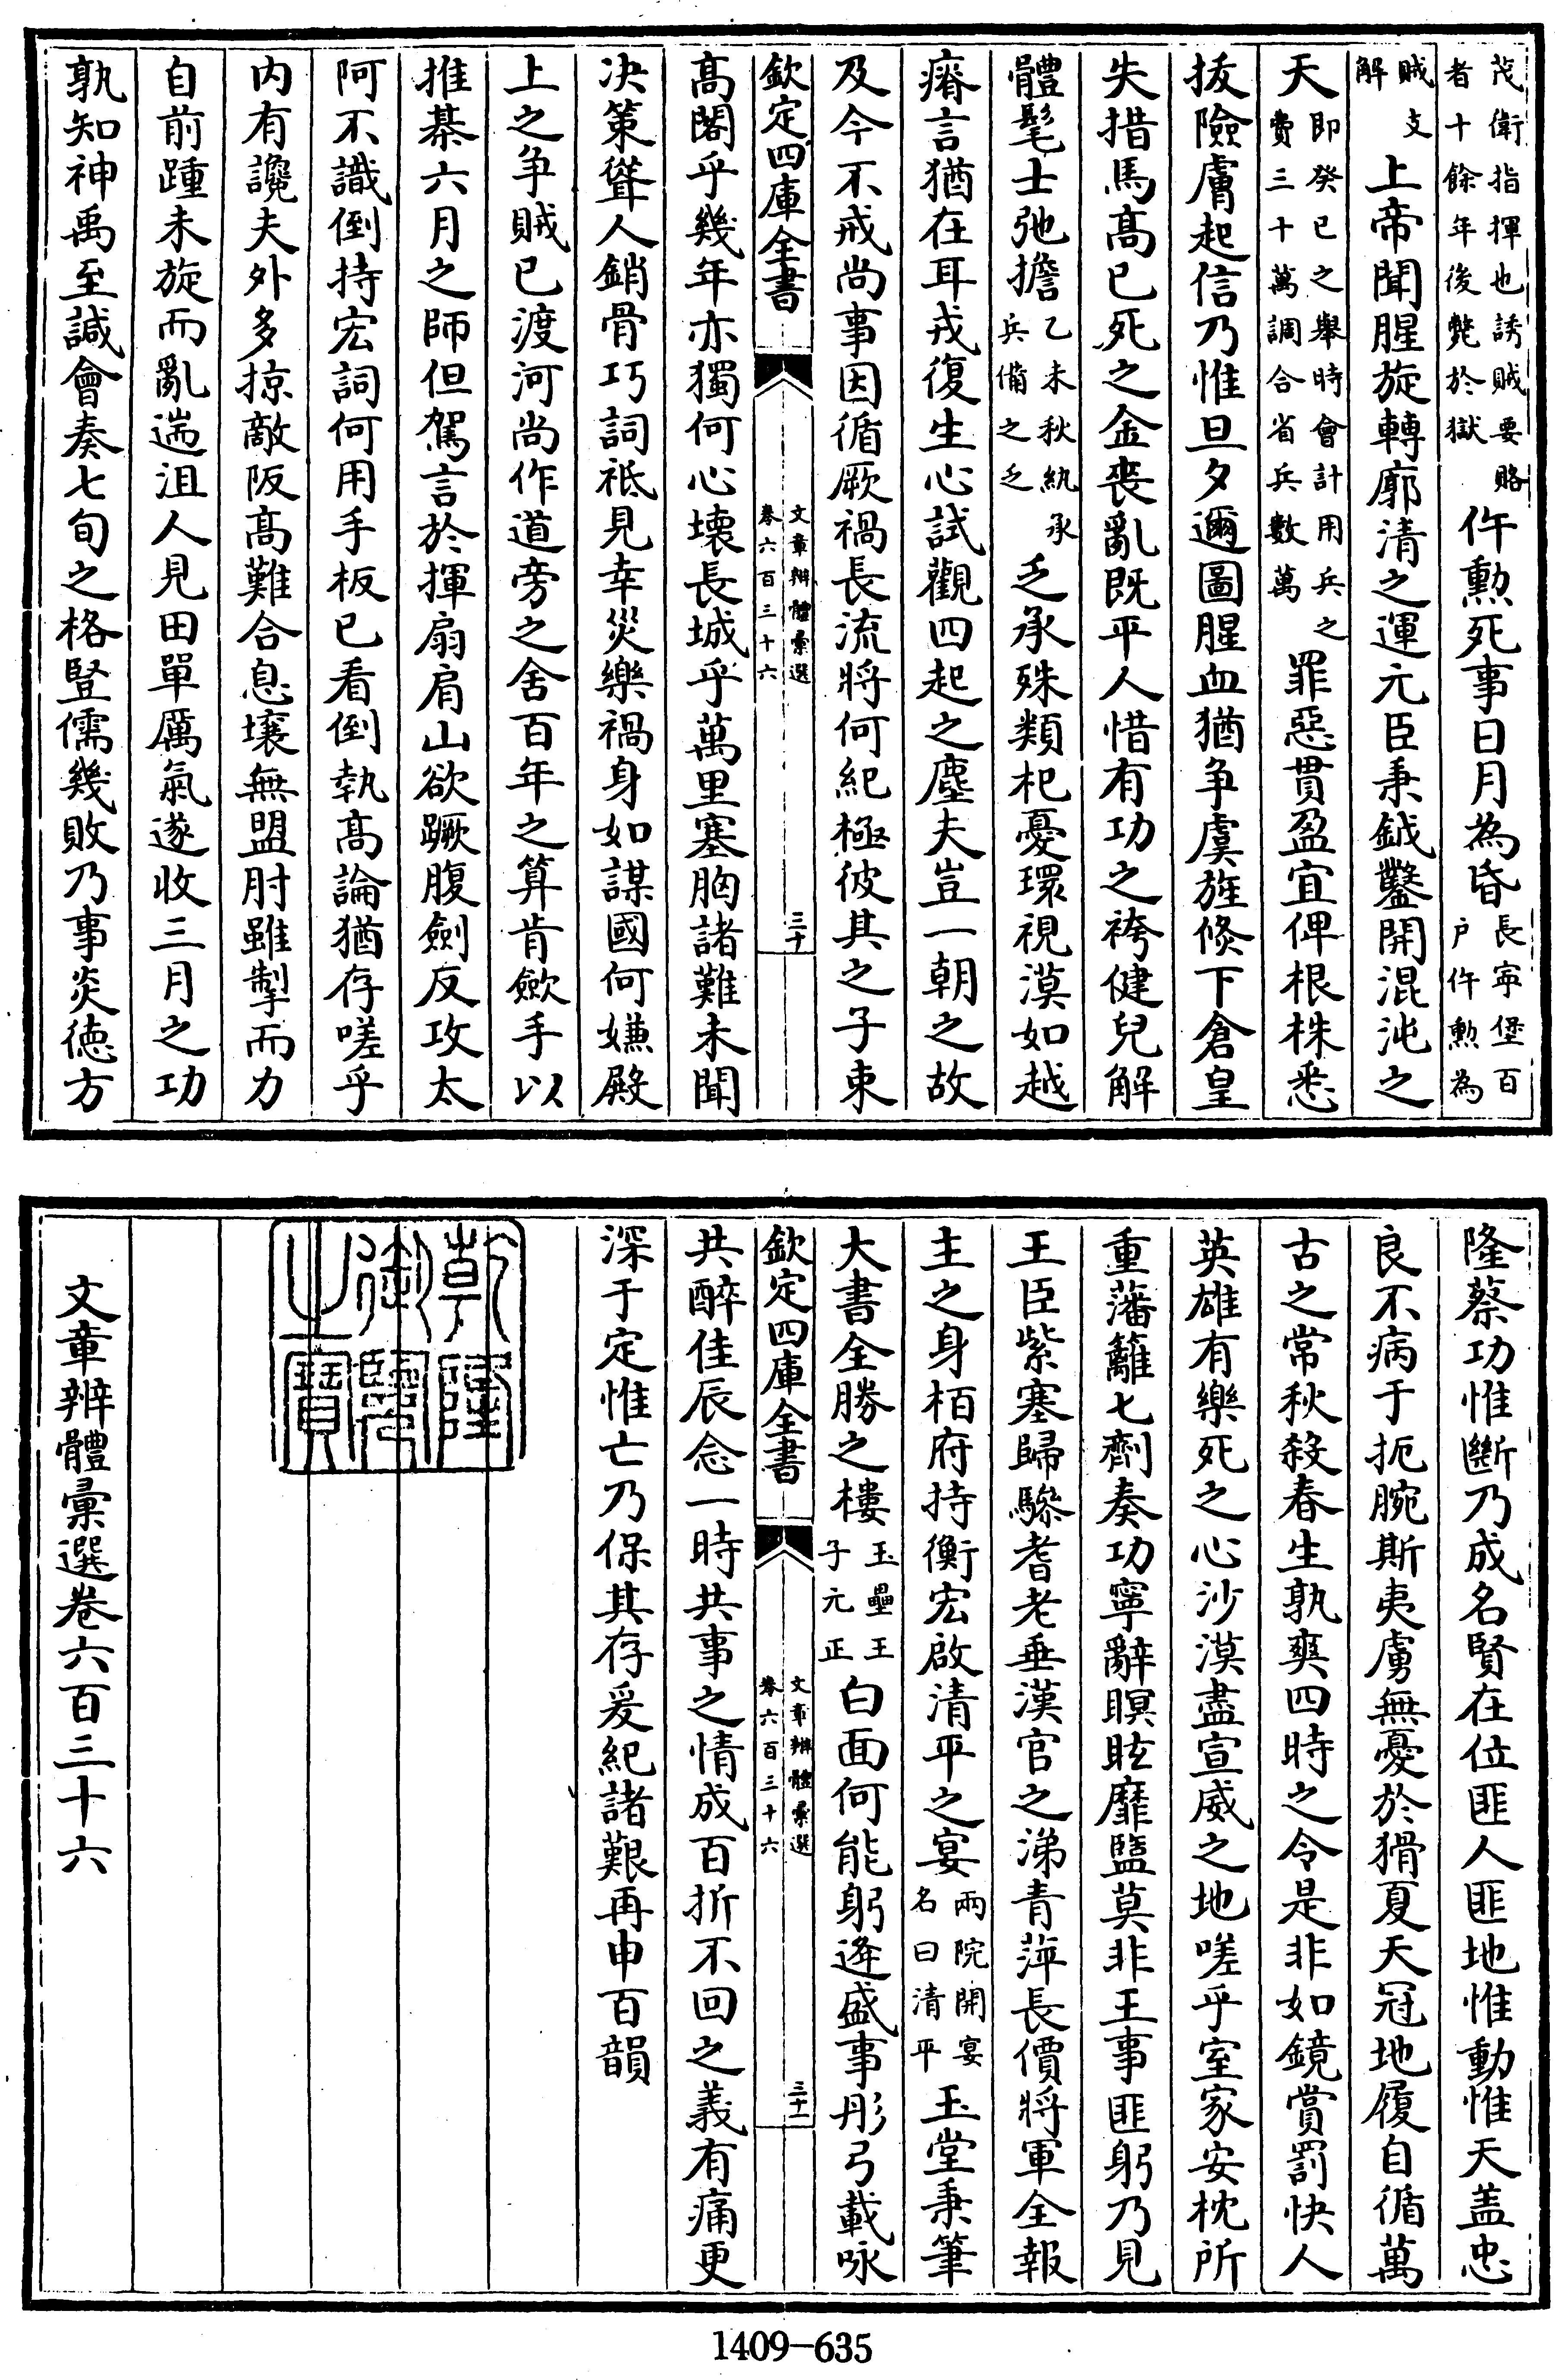 茂衛指揮也誘賊要賂者十餘年後斃於獄仵勲死事日月為昏長寧堡百户仵勲為
賊支解上帝聞腥旋轉廓清之運元臣秉鉞鑿開混沌之
天即癸巳之舉時會計用兵之費三十萬調合省兵數萬罪惡貫盈宜俾根株悉
拔險膚起信乃惟旦夕邇圖腥血猶争虞旌倐下倉皇
失措馬髙已死之金喪亂既平人惜有功之袴健兒解
體髦士弛擔乙未秋紈承兵備之乏乏承殊類杞憂環視漠如越
瘠言猶在耳戎復生心試觀四起之塵夫豈一朝之故
及今不戒尚事因循厥禍長流將何紀極彼其之子束
欽定四庫全書
文章辨體彙選
卷六百三十六
三十
髙閣乎幾年亦獨何心壞長城乎萬里塞胸諸難未聞
决策聳人銷骨巧詞祗見幸災樂禍身如謀國何嫌殿
上之争賊已渡河尚作道旁之舍百年之算肯歛手以
推棊六月之師但駕言於揮扇肩山欲蹶腹劍反攻太
阿不識倒持宏詞何用手板已看倒執髙論猶存嗟乎
内有讒夫外多掠敵阪髙難合息壤無盟肘雖掣而力
自前踵未旋而亂遄沮人見田單厲氣遂收三月之功
孰知神禹至諴會奏七旬之格豎儒幾敗乃事炎徳方
隆蔡功惟斷乃成名賢在位匪人匪地惟動惟天盖忠
良不病于扼腕斯夷虜無憂於猾夏天冠地履自循萬
古之常秋殺春生孰爽四時之令是非如鏡賞罰快人
英雄有樂死之心沙漠盡宣威之地嗟乎室家安枕所
重藩籬七劑奏功寧辭瞑眩靡盬莫非王事匪躬乃見
王臣紫塞歸驂耆老垂漢官之涕青萍長價將軍全報
主之身栢府持衡宏啟清平之宴兩院開宴名曰清平玉堂秉筆
大書全勝之樓玉壘王子元正白面何能躬逄盛事彤弓載咏
欽定四庫全書
文章辨體彙選
卷六百三十六
三十一
共醉佳辰念一時共事之情成百折不回之義有痛更
深于定惟亡乃保其存爰紀諸艱再申百韻
乾隆御覽之寶
文章辨體彙選卷六百三十六
1409-635